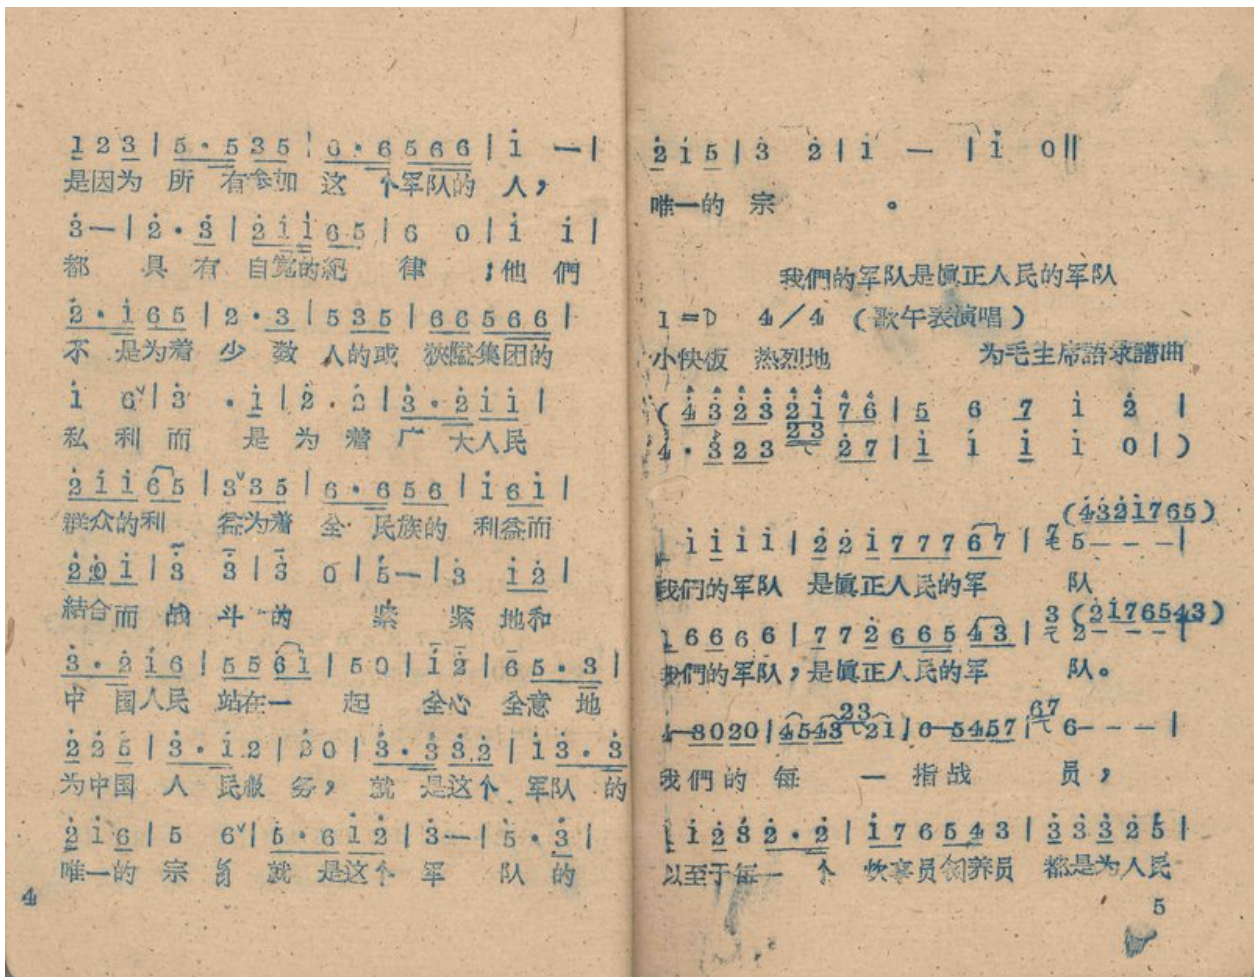 1 2 3 | 5 · 5 3 5 | 0 · 6 5 6 6 | i — |
是因为 所 有参加 这 个军队的 人，
3 — | 2 · 3 | 2 i i 6 5 | 6 0 | i i |
都 具 有 自覚的紀 律 ；他 們
2 · i 6 5 | 2 · 3 | 5 3 5 | 6 6 5 6 6 |
不 是为着 少 数 人的或 狹隘集团的
i 6 ˅ | 3 · i | 2 . 2 | 3 · 2 i i |
私 利 而 是 为 着 广 大人民
2 i i 6 5 | 3 ˅ 3 5 | 6 · 6 5 6 | i 6 i |
群众的利 益为着 全 民族的 利益而
2 0 i | 3 3 | 3 0 | 5 — | 3 i 2 |
結合而 战 斗 的 紧 紧 地和
3 · 2 i 6 | 5 5 6 i | 5 0 | i 2 | 6 5 · 3 |
中 国人民 站在一 起 全心 全意 地
2 2 5 | 3 · i 2 | 2 0 | 3 · 3 3 2 | i 3 · 3
为中国 人 民服 务， 就 是这个 军队 的
2 i 6 | 5 6 ˅ | 5 · 6 i 2 | 3 — | 5 · 3 |
唯一的 宗 旨 就 是这个 军 队 的
4
2 i 5 | 3 2 | i — | i 0 ‖
唯一的 宗 。
我們的军队是眞正人民的军队
1=D 4/4 （歌午表演唱）
小快板 热烈地 为毛主席語录譜曲
( 4 3 2 3 2 i 7 6 | 5 6 7 i 2 |
4 · 3 2 3 2 3 2 7 | i i i i 0 | )
(4 3 2 i 7 6 5)
i i i i | 2 2 i 7 7 7 6 7 | 7 5 - - - |
我們的军队 是眞正人民的军 队
3 (2 i 7 6 5 4 3)
6 6 6 6 | 7 7 2 6 6 5 4 3 | 2 - - - |
我們的军队，是眞正人民的军 队。
2 3 6 7
4 — 3 0 2 0 | 4 5 4 3 2 1 | 6 — 5 4 5 7 | 6 - - - |
我們的 每 一 指战 員，
i 2 3 2 · 2 | i 7 6 5 4 3 | 3 3 3 2 5 |
以至于每一 个 炊事员饲养员 都是为人民
5